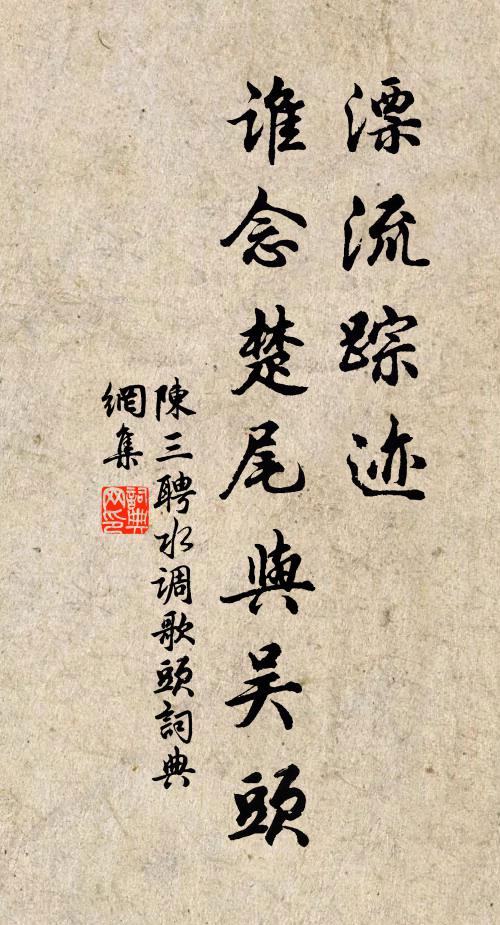 漂流踪迹
谁念楚尾與吴頭
陳三聘水调歌頭詞典
網集
詞典
网印